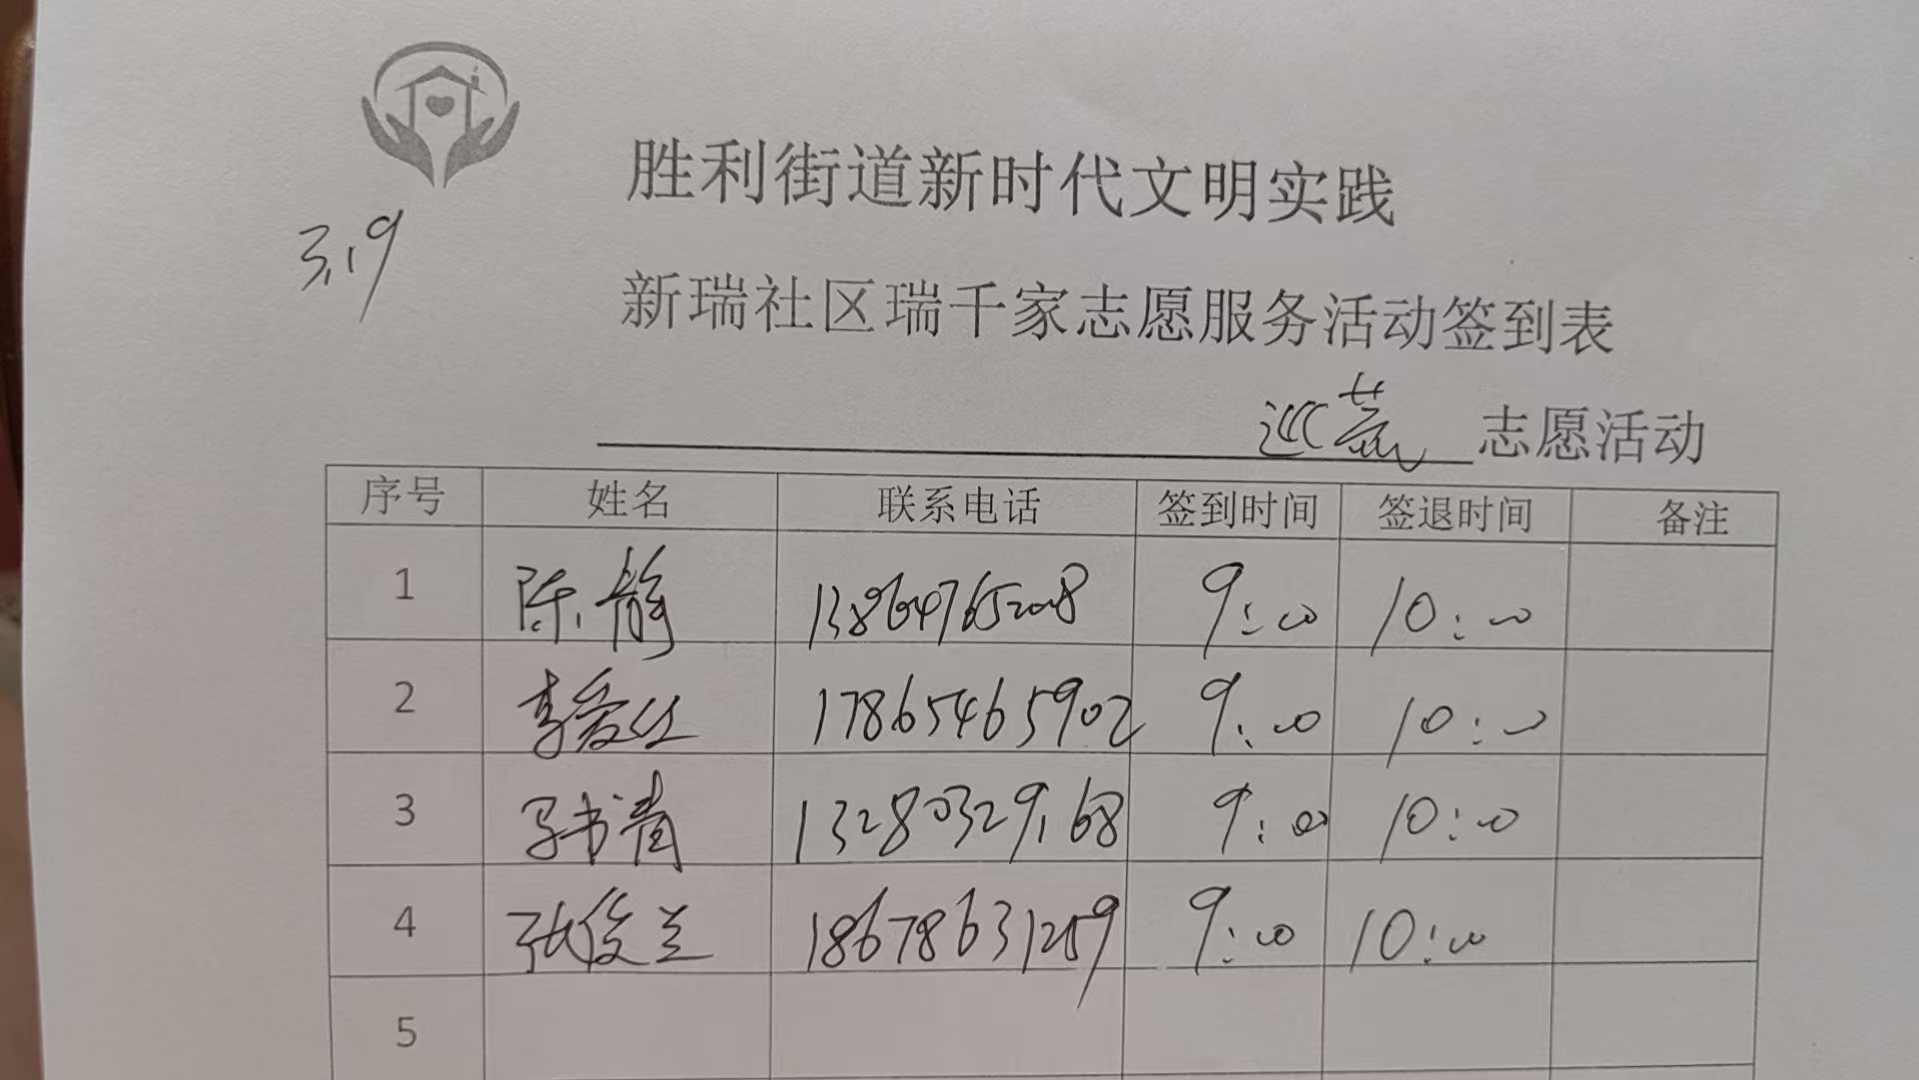 3.19
胜利街道新时代文明实践
新瑞社区瑞千家志愿服务活动签到表
巡荒 志愿活动
序号 姓名 联系电话 签到时间 签退时间 备注
1 陈静 13864765208 9:00 10:00
2 李爱仕 17865465902 9:00 10:00
3 孙书清 13280329168 9:00 10:00
4 张俊兰 18678631259 9:00 10:00
5